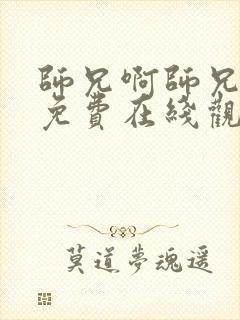 師兄啊師兄
免費在綫觀
莫道夢魂遥